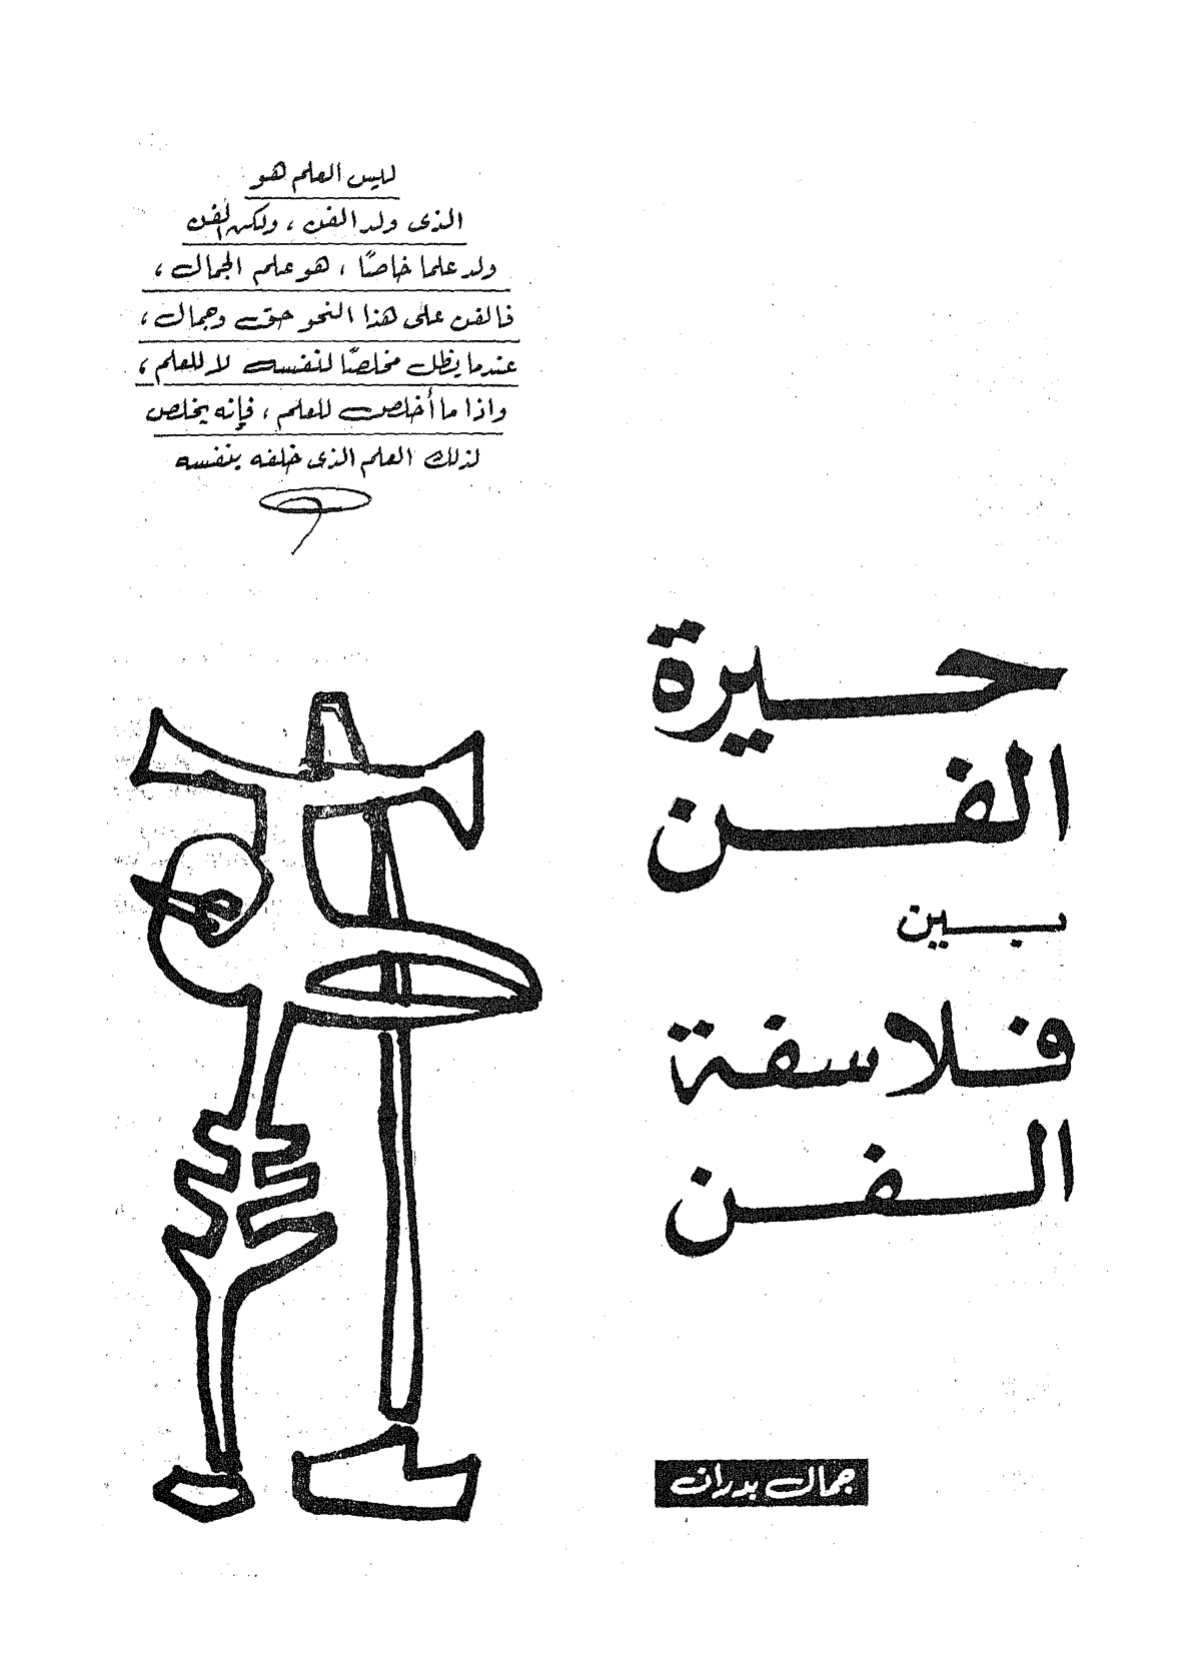 ليس العلم هو
الذى ولد الفن ، ولكن الفن
ولد علما خاصًا ، هو علم الجمال ،
فالفن على هذا النحو حق وجمال ،
عندما يظل مخلصًا لنفسه لا للعلم ،
واذا ما أخلص للعلم ، فإنه يخلص
لذلك العلم الذى خلفه بنفسه
حيرة
الفن
بين
فلاسفة
الفن
جمال بدران